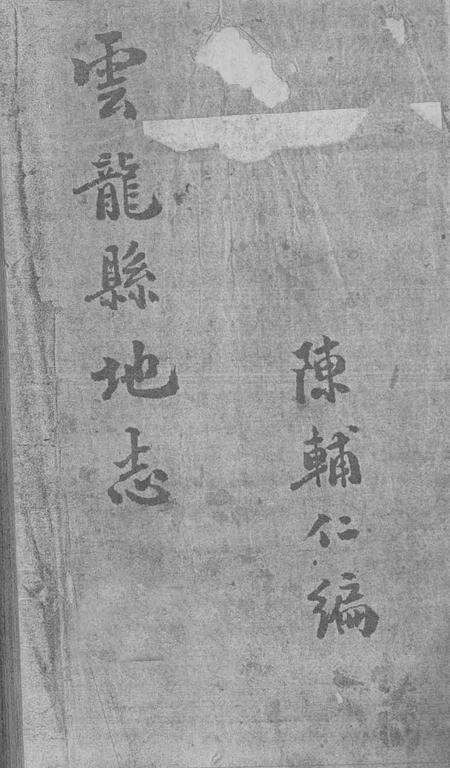 陳輔仁編
雲龍縣地志